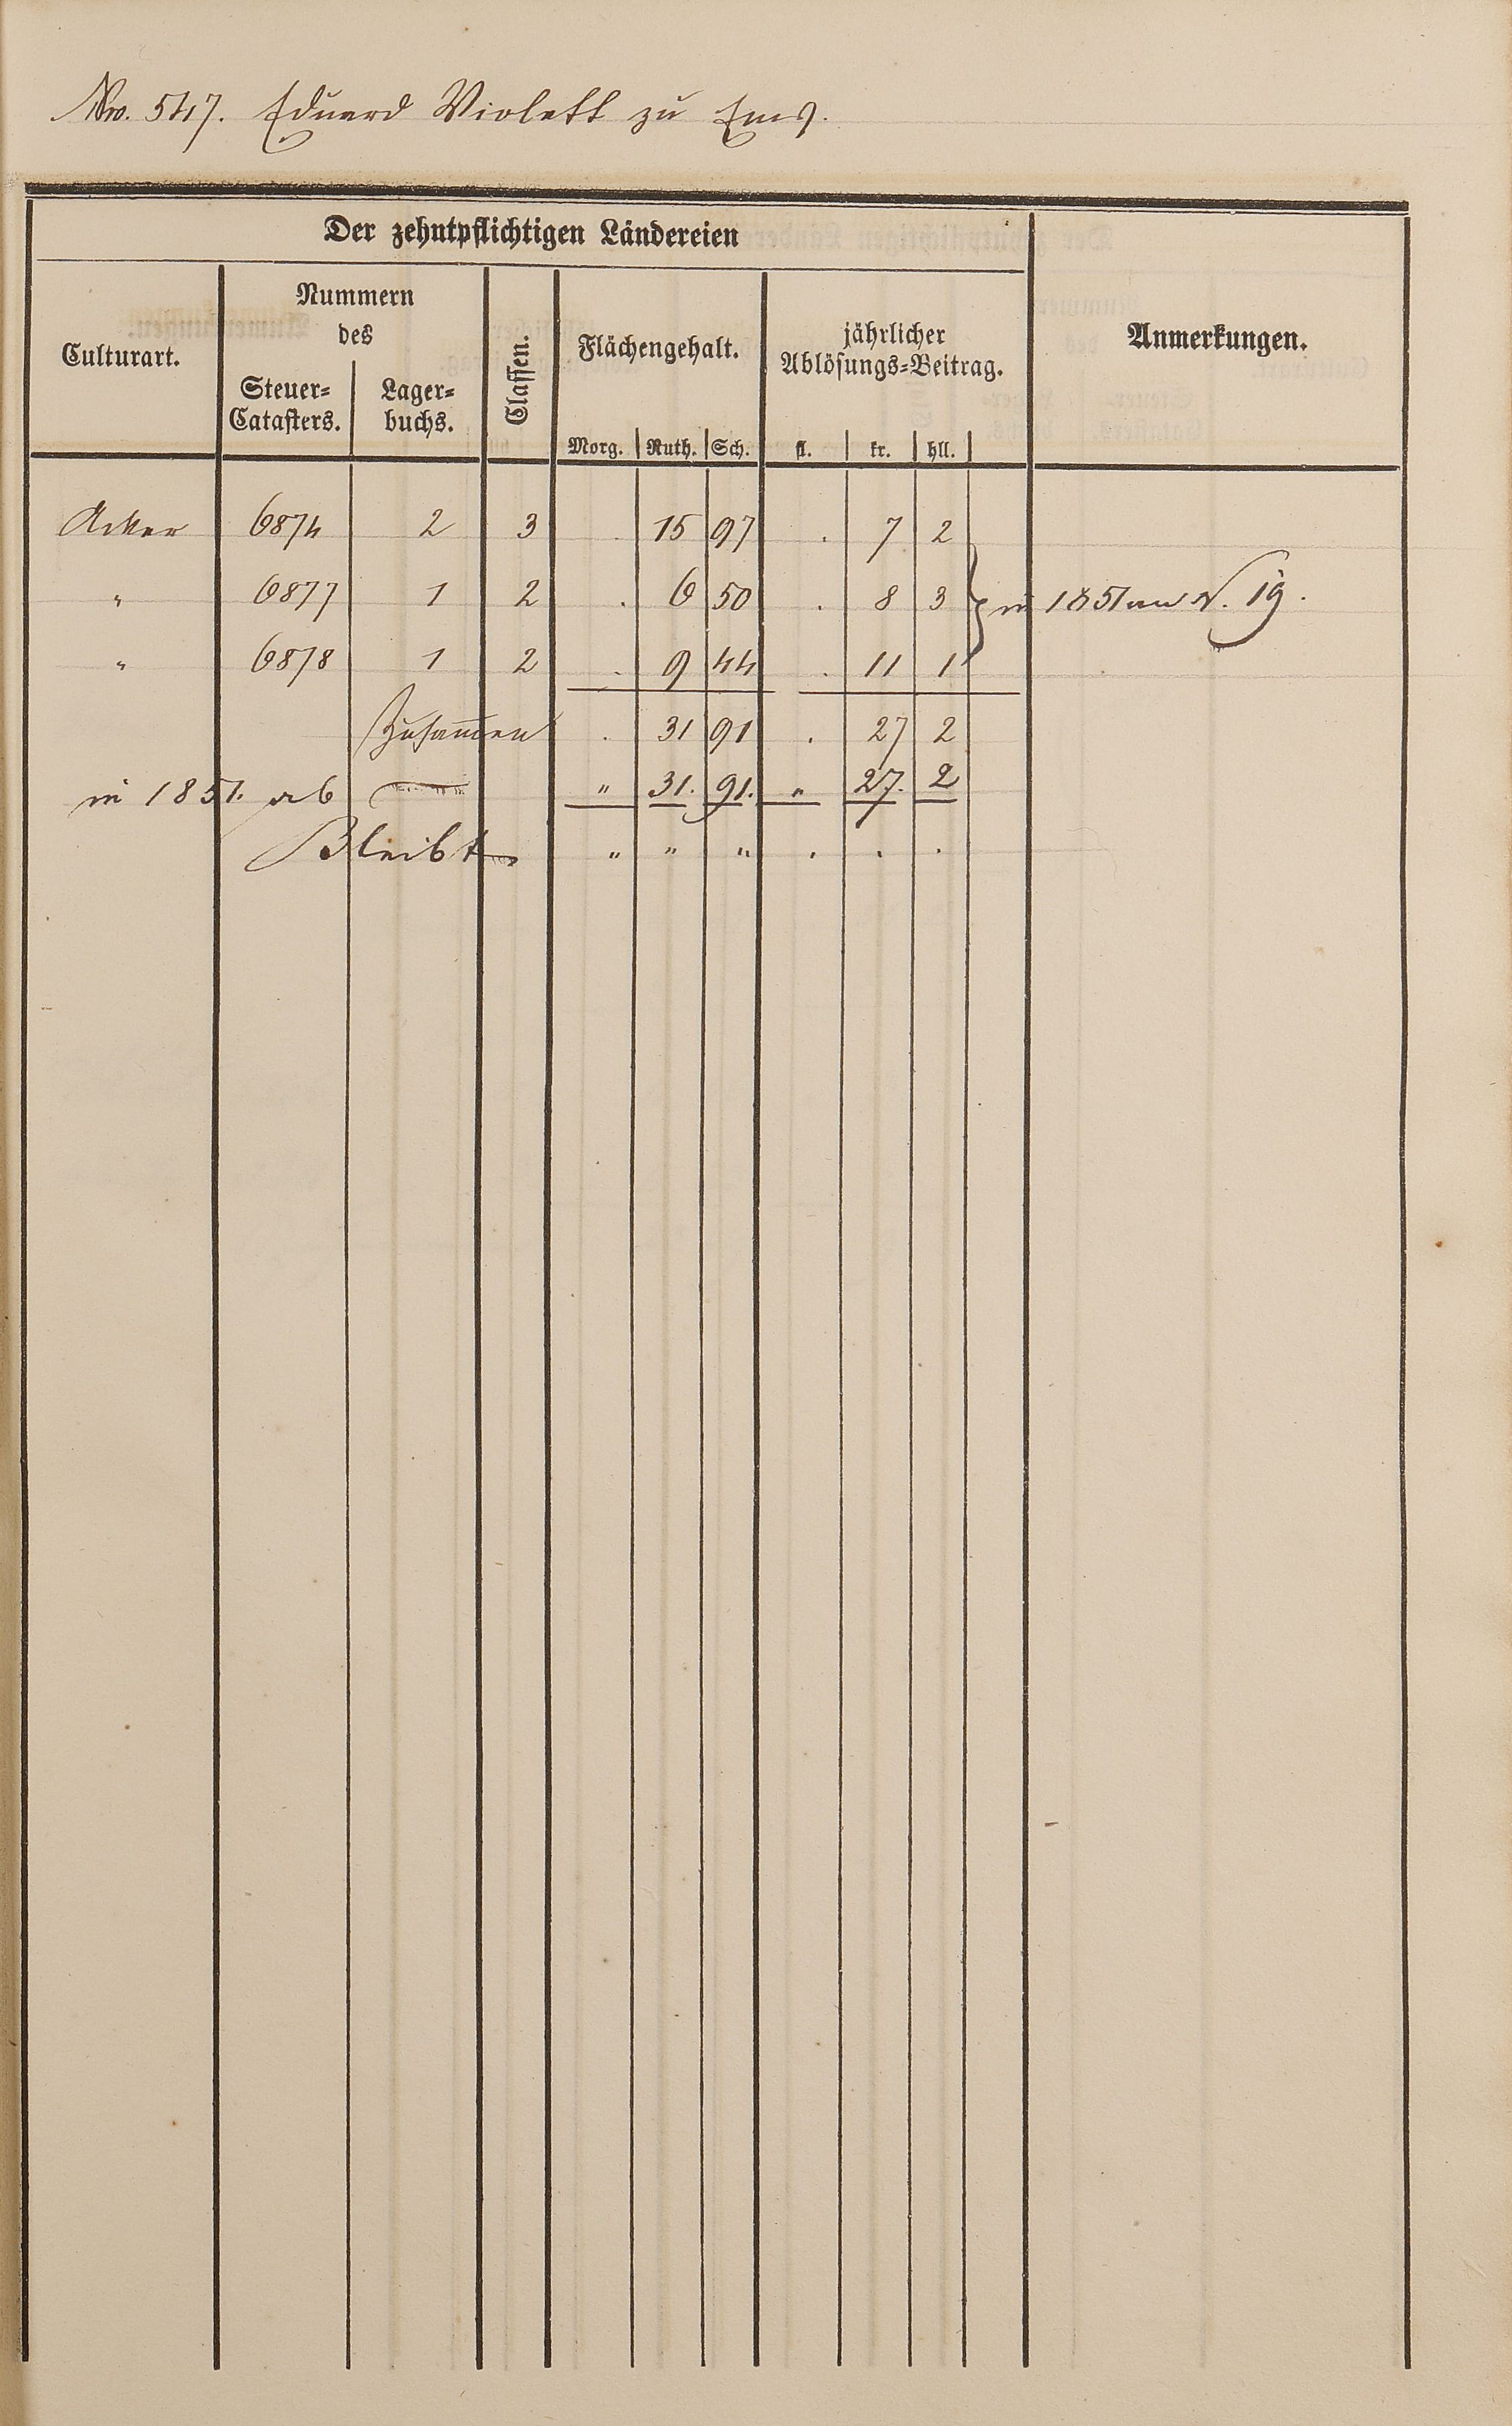 Nro. 547. Eduard Violett zu Ems.
Der zehntpflichtigen Ländereien
Culturart.
Nummern
des
Steuer-
Catasters.
Lager-
buchs.
Classen.
Flächengehalt.
Morg. Ruth. Sch.
jährlicher
Ablösungs-Beitrag.
fl. kr. hll.
Anmerkungen.
Acker 6874 2 3 . 15 97 . 7 2
" 6877 1 2 . 6 50 . 8 3 } in 1851 an N. 19.
" 6878 1 2 . 9 44 . 11 1
Zusam̅en . 31 91 . 27 2
in 1851. ab " 31. 91. " 27. 2
Bleibt " " " . . .